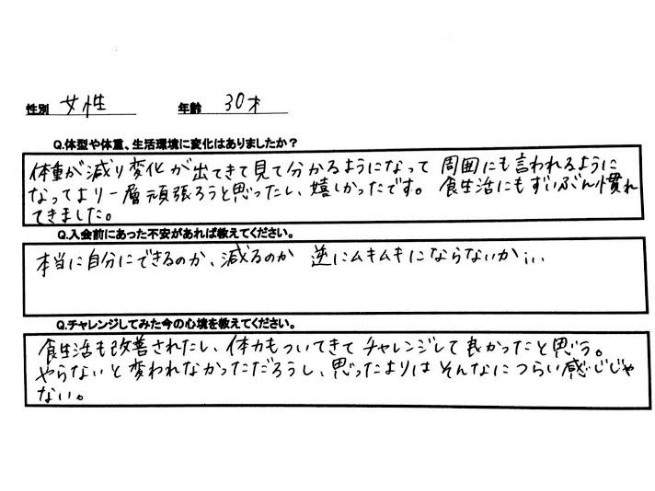 性別 女性 年齢 30才
Q.体型や体重、生活環境に変化はありましたか？
体重が減り変化が出てきて見て分かるようになって 周囲にも言われるように
なってより一層頑張ろうと思ったし、嬉しかったです。 食生活にもずいぶん慣れ
てきました。
Q.入会前にあった不安があれば教えてください。
本当に自分にできるのか、減るのか 逆にムキムキにならないか...
Q.チャレンジしてみた今の心境を教えてください。
食生活も改善されたし、体力もついてきて チャレンジして良かったと思う。
やらないと変われなかっただろうし、思ったよりは そんなに つらい感じじゃ
ない。